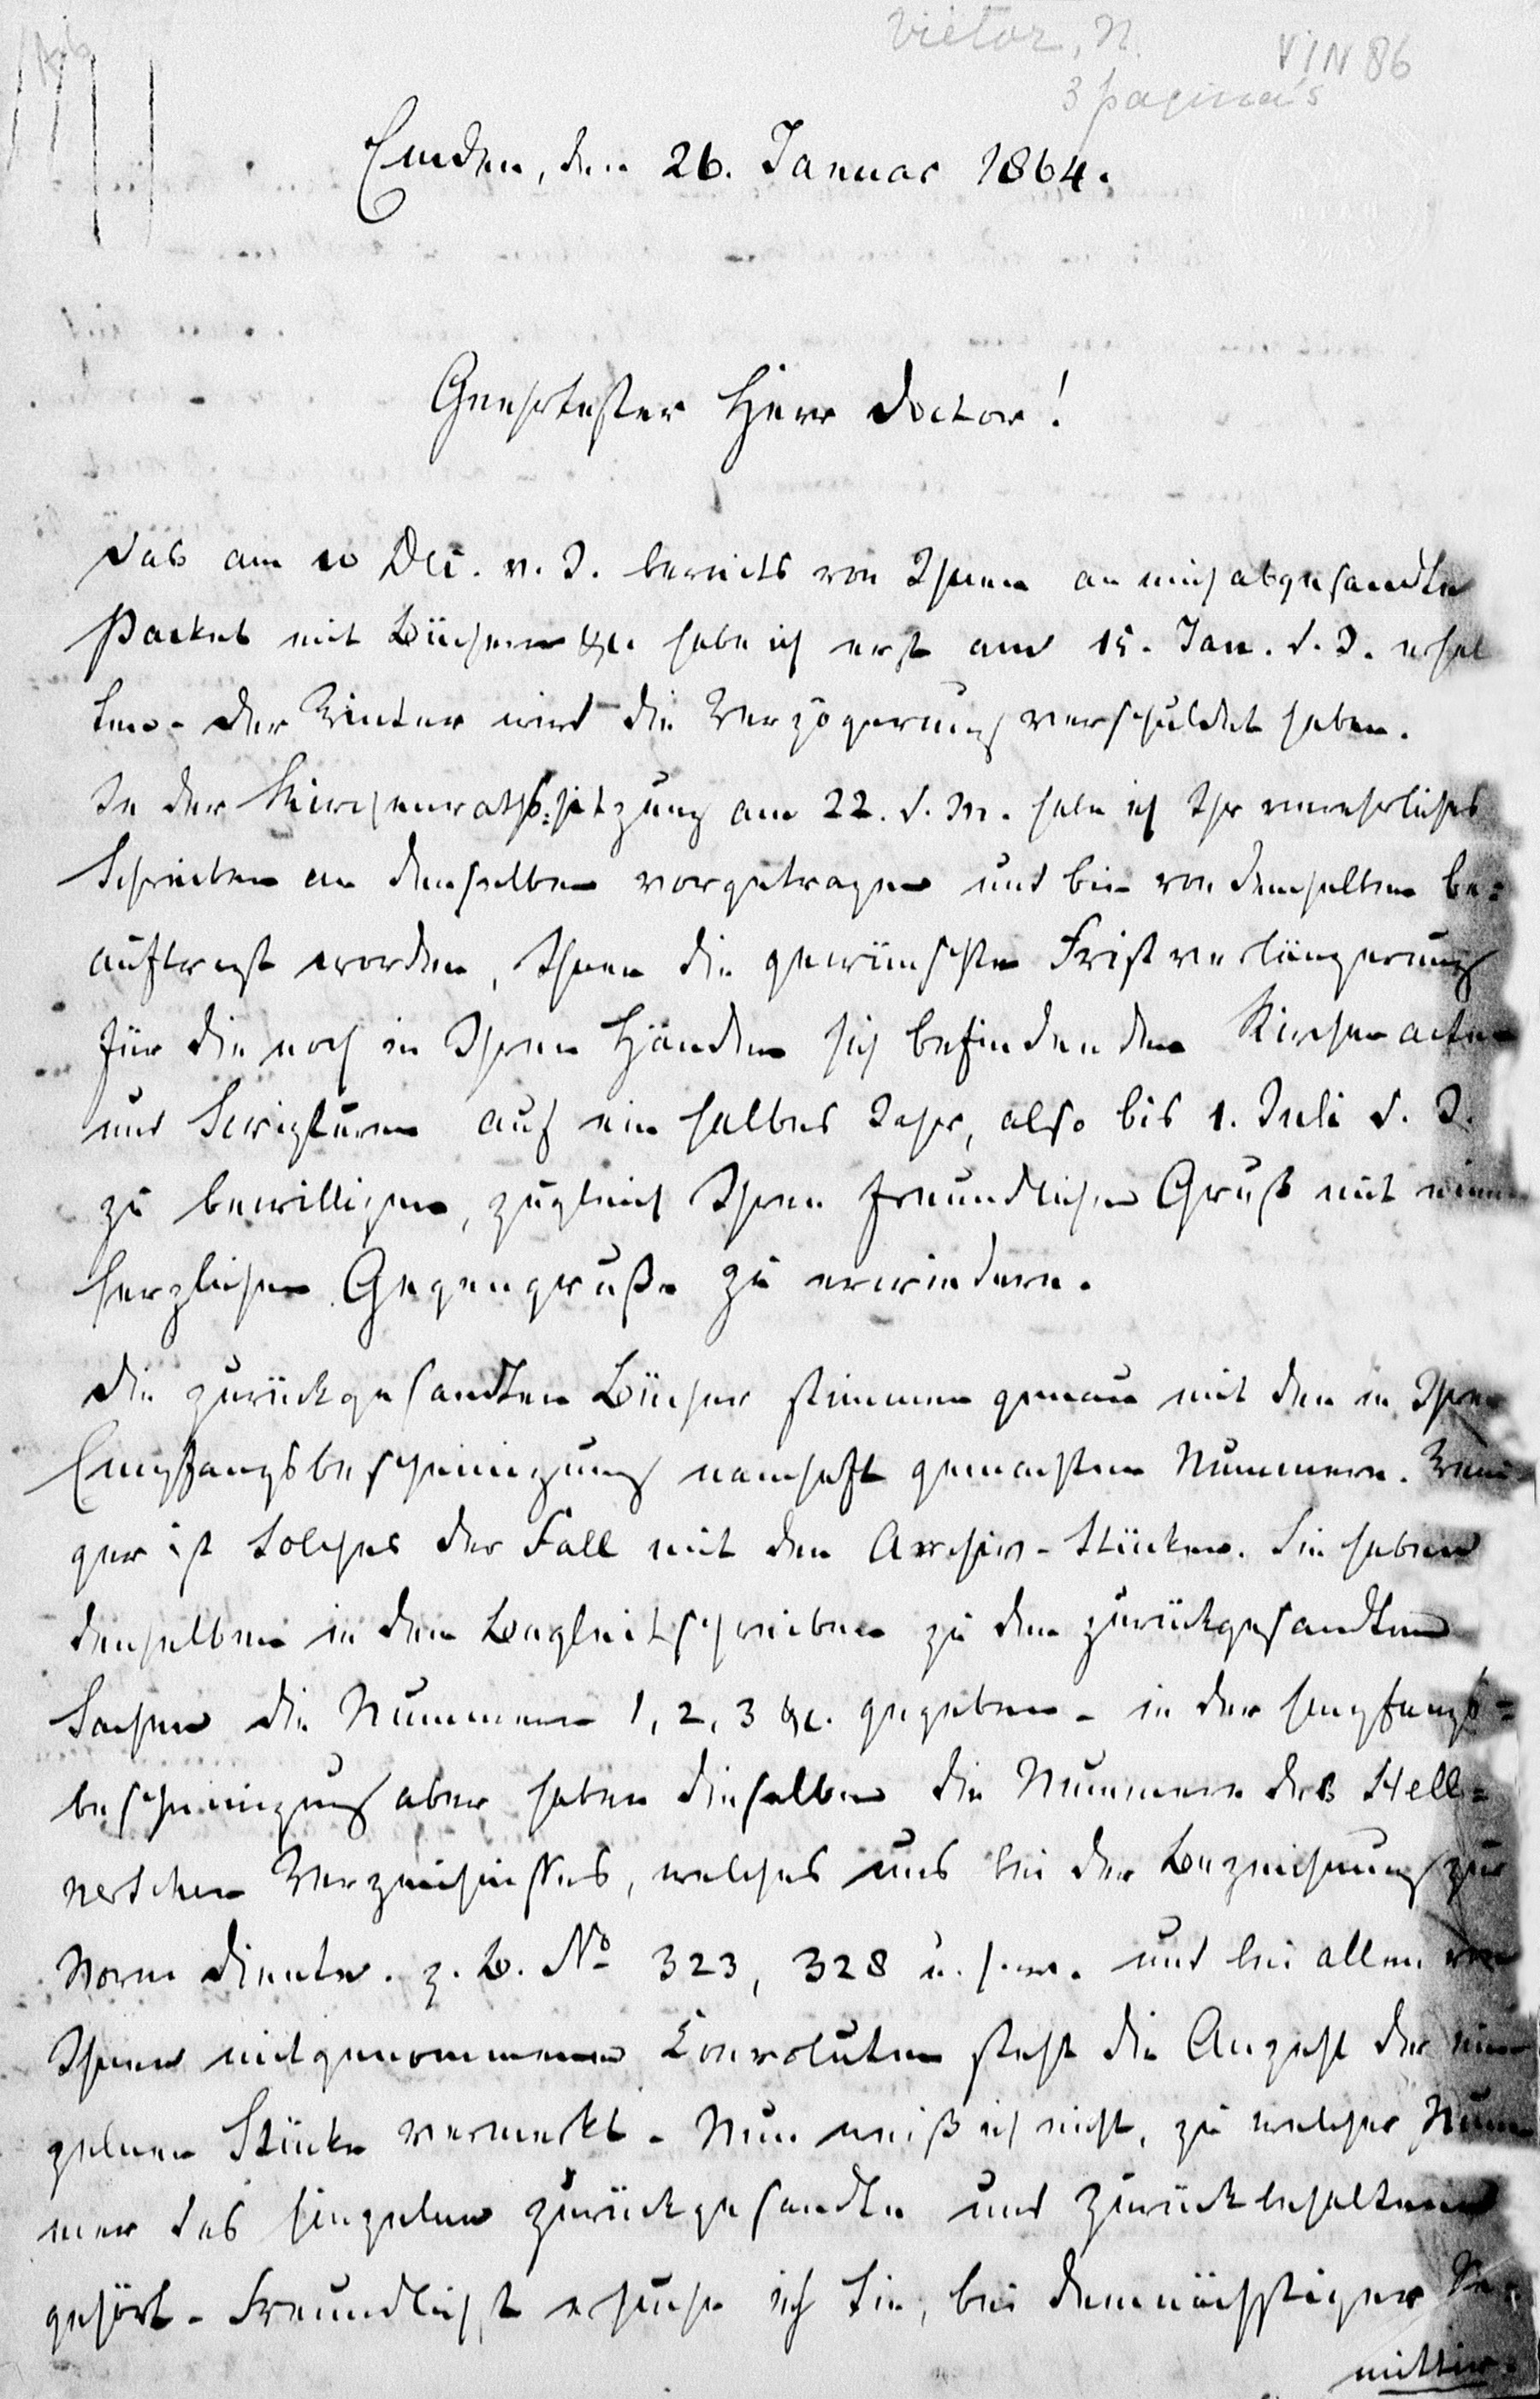 Vietor, N.
VIN 86
3 pagina's
Emden, den 26. Januar 1864.
Geehrtester Herr Doctor!
Das am 10 Dec. v. J. bereits von Ihnen an mich abgesandte
Packet mit Büchern &c. habe ich erst am 15. Jan. d. J. erhal
ten. Der Winter wird die Verzögerung verschuldet haben.
In der Kirchenrathssitzung am 22. d. M. habe ich Ihr verehrliches
Schreiben an denselben vorgetragen und bin von demselben be=
auftragt worden, Ihnen die gewünschte Fristverlängerung
für die noch in Ihren Händen sich befindenden Kirchenacten
und Scripturen auf ein halbes Jahr, also bis 1. Juli d. J.
zu bewilligen, zugleich Ihren freundlichen Gruß mit einem
herzlichen Gegengruße zu erwiedern.
Die zurückgesandten Bücher stimmen genau mit den in Ihrer
Empfangsbescheinigung namhaft gemachten Nummern. Weni
ger ist solches der Fall mit den Archiv-Stücken. Sie haben
denselben in dem Begleitschreiben zu den zurückgesandten
Sachen die Nummern 1, 2, 3 &c. gegeben - in der Empfangs=
bescheinigung aber haben dieselben die Nummern des Stell=
nerschen Verzeichnisses, welches uns bei der Bezeichnung zur
Norm diente. z. B. No 323, 328 u. s. w. und bei allen von
Ihnen mitgenommenen Convoluten steht die Anzahl der ein
zelnen Stücke vermerkt. Nun weiß ich nicht, zu welcher Num
mer das Einzelne zurückgesandte und zurückbehaltene
gehört. Freundlichst ersuche ich Sie, bei demnächstiger Re=
mittir=